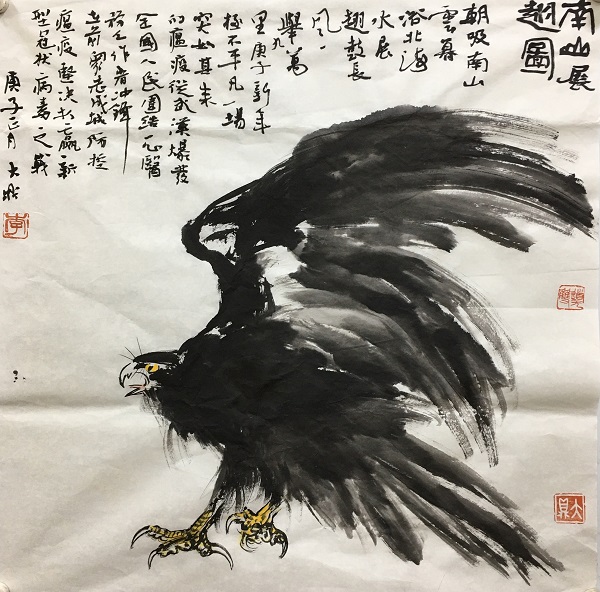 南山展
翅圖
朝吸南山
雲暮
浴北海
水展
翅鼓長
風一
舉九萬
里庚子新年
極不平凡一場
突如其来
的瘟疫從武漢爆發
全國人民團結一心醫
務工作者冲鋒
在前众志成城防控
瘟疫堅决打赢新
型冠状病毒之戰
庚子正月大
李